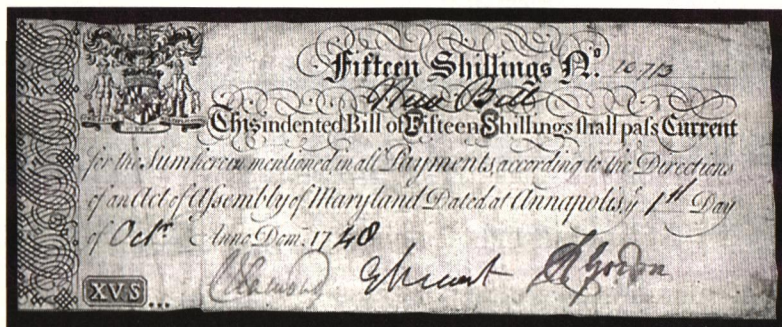 Fifteen Shillings N.º 10713
New Bill
This indented Bill of Fifteen Shillings shall pass Current
for the Sum herein mentioned, in all Payments, according to the Directions
of an Act of Assembly of Maryland Dated at Annapolis yͤ 1st Day
of Octr. Anno Dom. 1748
R Gordon
XV S